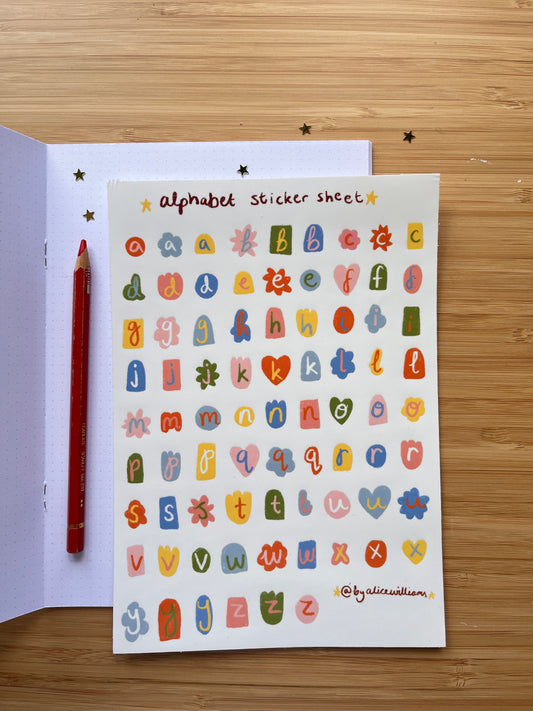 alphabet sticker sheet
a a a a b b c c c
d d d e e e f f f
g g g h h h i i i
j j j k k k l l l
m m m n n n o o o
p p p q q q r r r
s s s t t t u u u
v v v w w w x x x
y y y z z z
@byalicewilliams